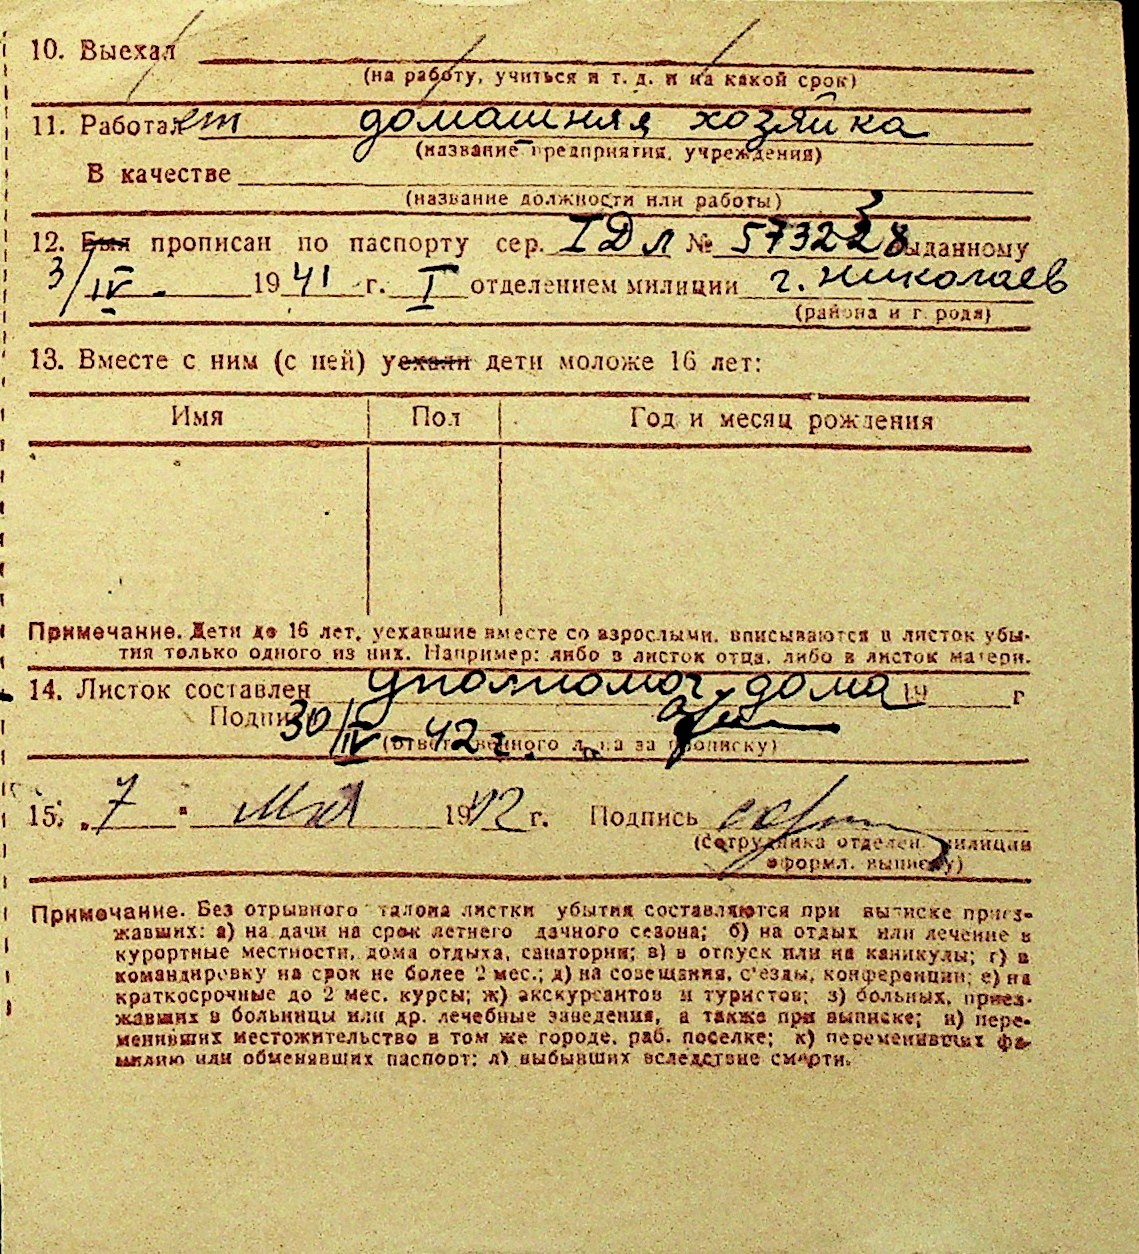 10. Выехал
(на работу, учиться и т. д. и на какой срок)
11. Работает домашняя хозяйка
(название предприятия, учреждения)
В качестве
(название должности или работы)
12. Был прописан по паспорту сер. I Дл № 573228 выданному
3/IV. 1941 г. I отделением милиции г. Николаев
(района и г. родя)
13. Вместе с ним (с ней) уехали дети моложе 16 лет:
Имя Пол Год и месяц рождения
Примечание. Дети до 16 лет, уехавшие вместе со взрослыми, вписываются в листок убы-
тия только одного из них. Например: либо в листок отца, либо в листок матери.
14. Листок составлен уполномоч. дома 19 г
Подпись 30/IV-42 г.
(ответственного лица за прописку)
15. „7" мая 1942 г. Подпись
(Сотрудника отделен. милиции
оформл. выписку)
Примечание. Без отрывного талона листки убытия составляются при выписке приез-
жавших: а) на дачи на срок летнего дачного сезона; б) на отдых или лечение в
курортные местности, дома отдыха, санатории; в) в отпуск или на каникулы; г) в
командировку на срок не более 2 мес.; д) на совещания, с'езды, конференции; е) на
краткосрочные до 2 мес. курсы; ж) экскурсантов и туристов; з) больных, приез-
жавших в больницы или др. лечебные заведения, а также при выписке; и) пере-
менивших местожительство в том же городе, раб. поселке; к) переменивших фа-
милию или обменявших паспорт; л) выбывших вследствие смерти.